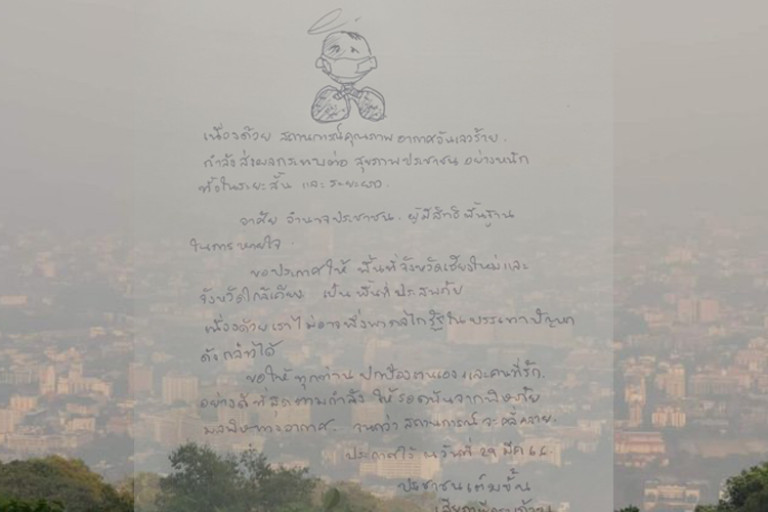 เนื่องด้วย สถานการณ์คุณภาพอากาศอันเลวร้าย.
กำลังส่งผลกระทบต่อ สุขภาพประชาชน อย่างหนัก
ทั้งในระยะสั้น และระยะยาว.
อาศัย อำนาจประชาชน. ผู้มีสิทธิพื้นฐาน
ในการหายใจ.
ขอประกาศให้ พื้นที่จังหวัดเชียงใหม่และ
จังหวัดใกล้เคียง เป็นพื้นที่ประสบภัย
เนื่องด้วยเราไม่อาจพึ่งพากลไกรัฐในบรรเทาปัญหา
ดังกล่าวได้
ขอให้ ทุกท่าน ปกป้องตนเองและคนที่รัก.
อย่างดีที่สุดตามกำลัง ให้รอดพ้นจากพิษภัย
มลพิษทางอากาศ. จนกว่า สถานการณ์จะคลี่คลาย.
ประกาศไว้ ณ วันที่ 29 มีค 66.
ประชาชนเต็มขั้น